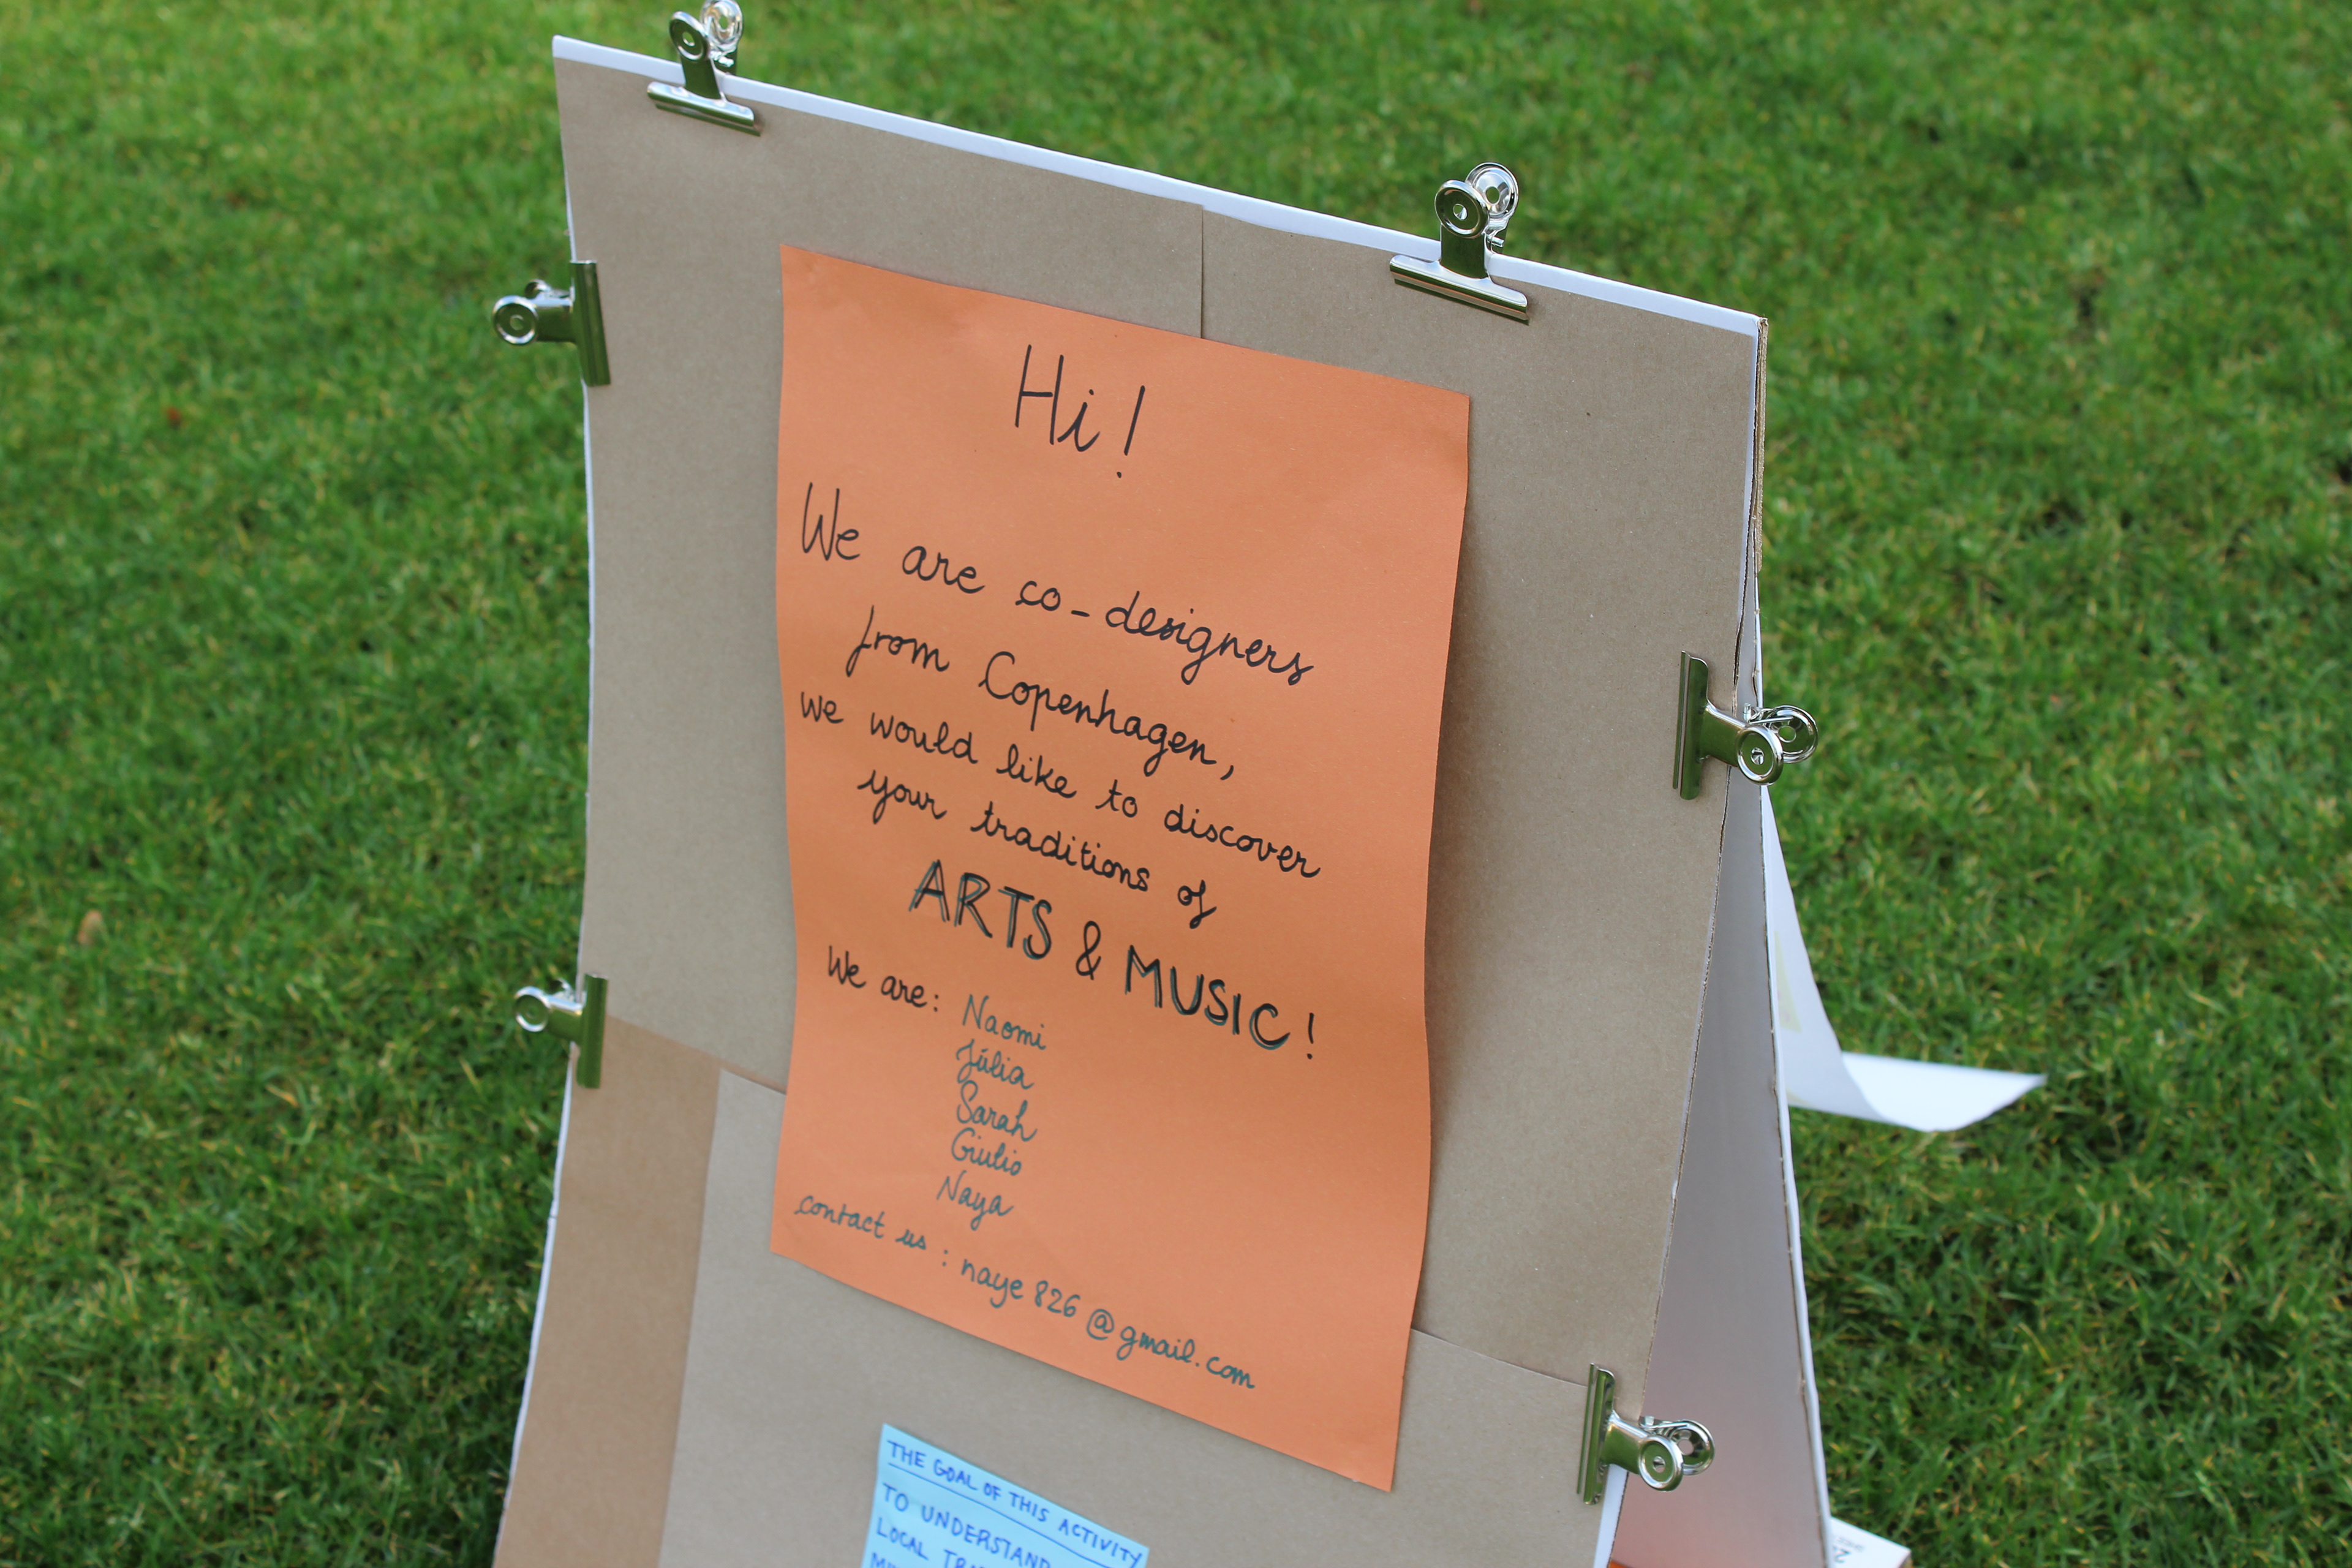 Hi!
We are co-designers
from Copenhagen,
we would like to discover
your traditions of
ARTS & MUSIC!
We are: Naomi
Júlia
Sarah
Giulio
Naya
contact us : naye826@gmail.com
THE GOAL OF THIS ACTIVITY
TO UNDERSTAND
LOCAL